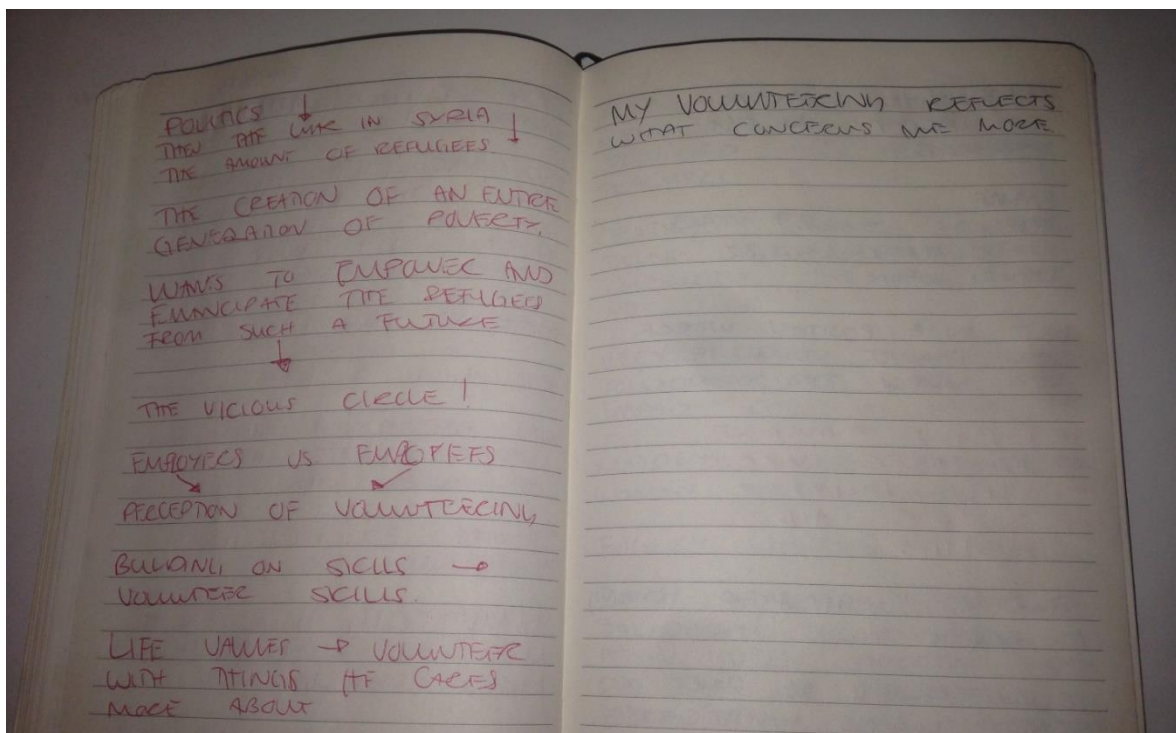 POLITICS ↓
THEN THE WAR IN SYRIA ↓
THE AMOUNT OF REFUGEES
THE CREATION OF AN ENTIRE
GENERATION OF POVERTY.
WANTS TO EMPOWER AND
EMANCIPATE THE REFUGEES
FROM SUCH A FUTURE
↓
THE VICIOUS CIRCLE!
EMPLOYERS VS EMPLOYEES
PERCEPTION OF VOLUNTEERING
BUILDING ON SKILLS →
VOLUNTEER SKILLS.
LIFE VALUES → VOLUNTEER
WITH THINGS HE CARES
MORE ABOUT
MY VOLUNTEERING REFLECTS
WHAT CONCERNS ME MORE.